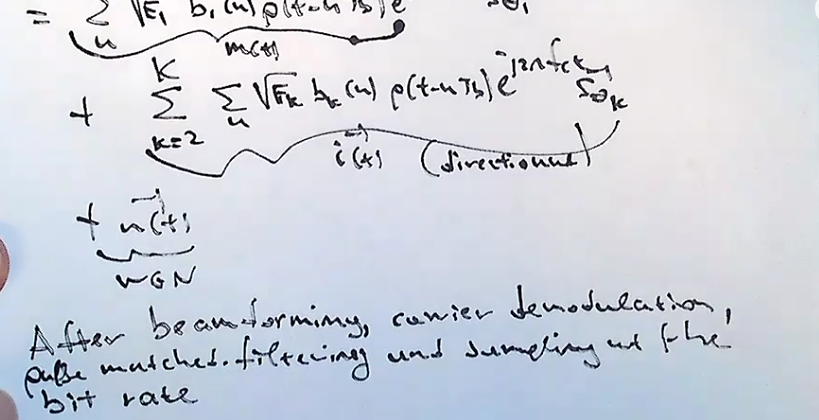 = Σ_n √E₁ b₁(n) p(t-nT_b) e s_θ₁
m(t)
+ Σ_{k=2}^{K} Σ_n √E_k b_k(n) p(t-nT_b) e^{j2πf_c t} s_θ_k
i(t) (directional)
+ n(t)
WGN
After beamforming, carrier demodulation,
pulse matched-filtering and sampling at the
bit rate